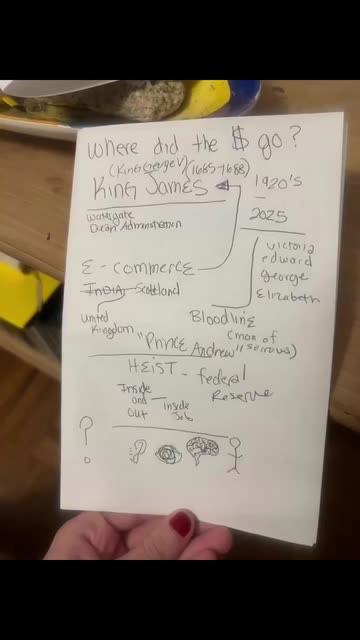 Where did the $ go?
(King George V) (1685-1688)
King James
1920's
-
2025
Watergate
Dean Administration
Victoria
edward
george
Elizabeth
E-commerce
India Scotland
United
Kingdom
Bloodline
(man of
sorrows)
"Prince Andrew"
HEIST - federal
Reserve
Inside
and - inside
out Job
?